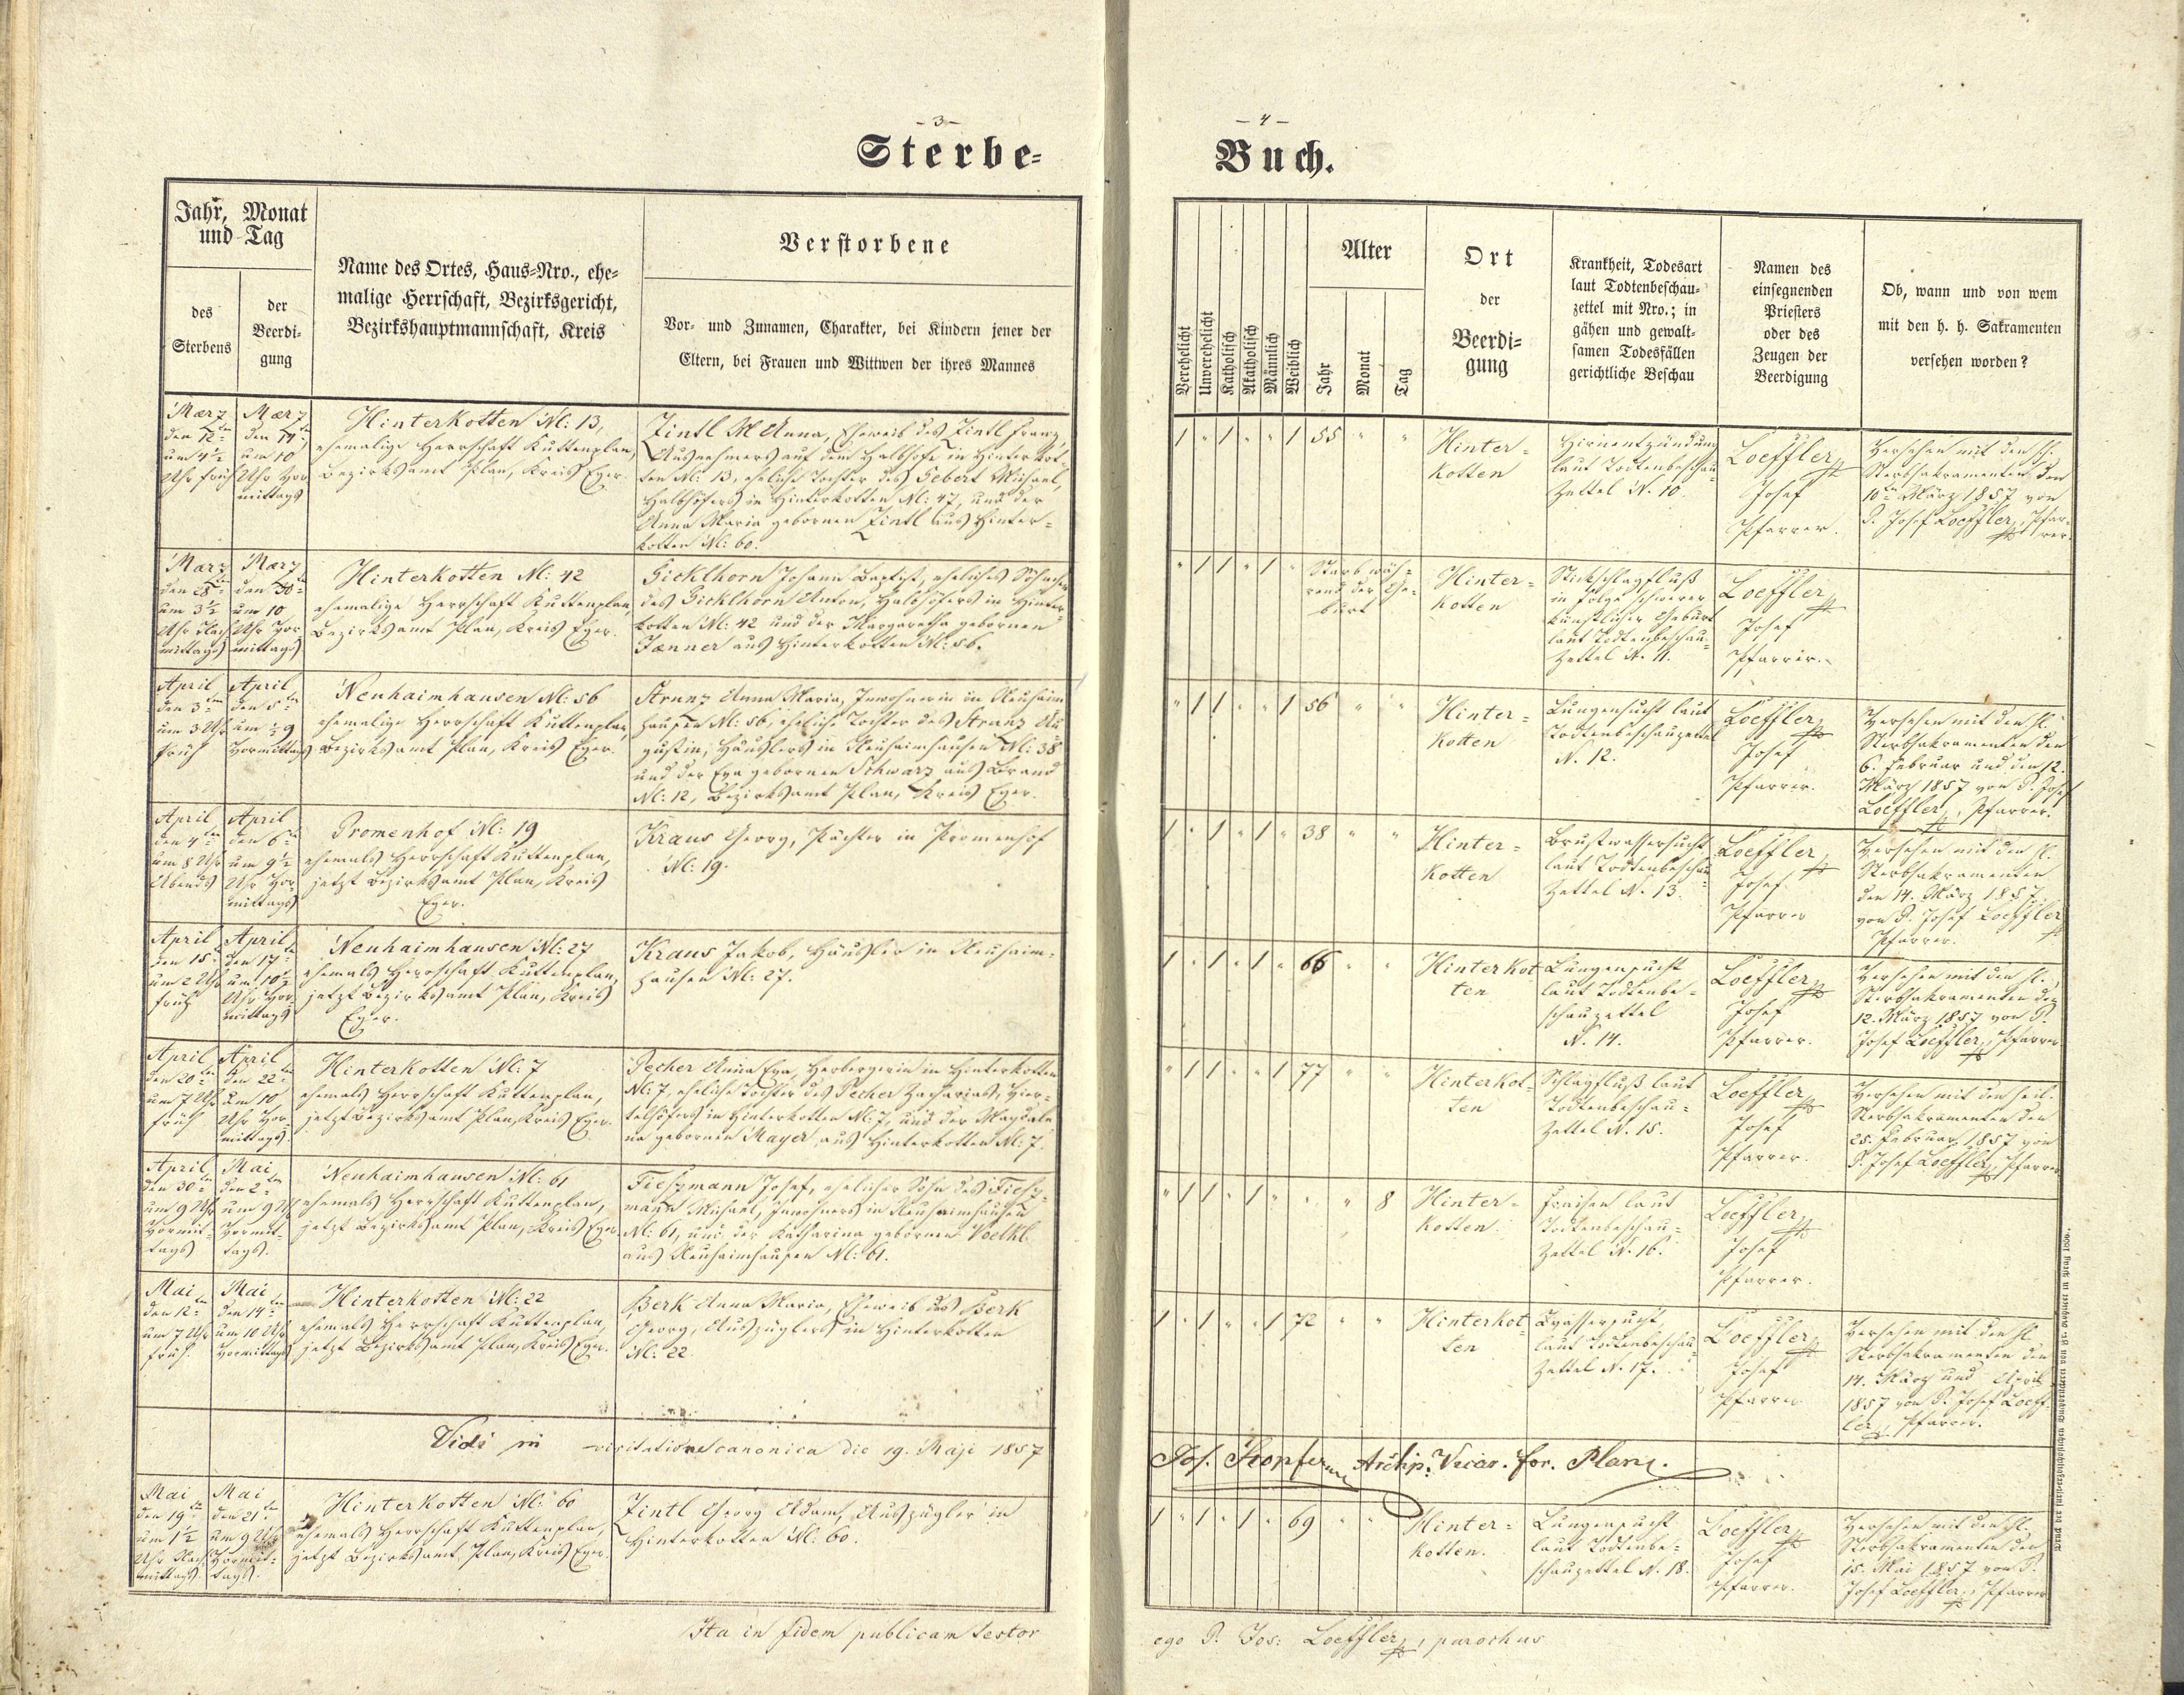 - 3 -
Sterbe-
Jahr, Monat
und Tag
des
Sterbens
der
Beerdi-
gung
Name des Ortes, Haus-Nro., ehe-
malige Herrschaft, Bezirksgericht,
Bezirkshauptmannschaft, Kreis
Verstorbene
Vor- und Zunamen, Charakter, bei Kindern jener der
Eltern, bei Frauen und Wittwen der ihres Mannes
März
den 12ten
um 4½
Uhr früh
März
den 14ten
um 10
Uhr Vor
mittags
Hinterkotten N: 13,
ehemalige Herrschaft Kuttenplan,
Bezirksamt Plan, Kreis Eger.
Zintl M Anna, Eheweib des Zintl Franz,
Ausnehmers auf dem Halbhofe in Hinterkot-
ten N: 13, eheliche Tochter des Gebert Michael,
Halbhöfers in Hinterkotten N: 47, und der
Anna Maria gebornen Zintl aus Hinter-
kotten N: 60.
März
den 28ten
um 3½
Uhr Nach
mittags
März
den 30ten
um 10
Uhr Vor
mittags
Hinterkotten N: 42
ehemalige Herrschaft Kuttenplan,
Bezirksamt Plan, Kreis Eger.
Gicklhorn Johann Baptist, eheliches Söhnchen
des Gicklhorn Anton, Halbhöfers in Hinter-
kotten N: 42 und der Margaretha gebornen
Jänner aus Hinterkotten N: 56.
April
den 3ten
um 3 Uhr
früh
April
den 5ten
um ½ 9
Vormittags
Neuhaimhausen N: 56
ehemalige Herrschaft Kuttenplan,
Bezirksamt Plan, Kreis Eger.
Strunz Anna Maria, Inwohnerin in Neuhaim
hausen N: 56, eheliche Tochter des Strunz Au
gustin, Häuslers in Neuhaimhausen N: 38
und der Eva gebornen Schwarz aus Brand
N: 12, Bezirksamt Plan, Kreis Eger.
April
den 4ten
um 8 Uhr
Abends
April
den 6ten
um 9½
Uhr Vor-
mittags
Promenhof N: 19
ehemals Herrschaft Kuttenplan,
jetzt Bezirksamt Plan, Kreis
Eger.
Kraus Georg, Pächter in Promenhof
N: 19.
April
den 15ten
um 2 Uhr
früh
April
den 17ten
um 10½
Uhr Vor-
mittags
Neuhaimhausen N: 27
ehemals Herrschaft Kuttenplan,
jetzt Bezirksamt Plan, Kreis
Eger.
Kraus Jakob, Häusler in Neuhaim-
hausen N: 27.
April
den 20ten
um 7 Uhr
früh
April
den 22ten
um 10
Uhr Vor-
mittags.
Hinterkotten N: 7
ehemals Herrschaft Kuttenplan,
jetzt Bezirksamt Plan, Kreis Eger.
Pecher Anna Eva, Herbergerin in Hinterkotten
N: 7, eheliche Tochter des Pecher Zacharias, Vier-
telhöfers in Hinterkotten N: 7, und der Magdale
na gebornen Mayer, aus Hinterkotten N: 7.
April
den 30ten
um 9 Uhr
Vormit-
tags
Mai
den 2ten
um 9 Uhr
Vormit-
tags.
Neuhaimhausen N: 61
ehemals Herrschaft Kuttenplan,
jetzt Bezirksamt Plan, Kreis Eger.
Josef, ehelicher Sohn des
mann Michael, Inwohners in Neuhaimhausen
N: 61, und der Katharina gebornen Voelkl
aus Neuhaimhausen N: 61.
Mai
den 12ten
um 7 Uhr
früh.
Mai
den 14ten
um 10 Uhr
Vormittags
Hinterkotten N: 22
ehemals Herrschaft Kuttenplan,
jetzt Bezirksamt Plan, Kreis Eger.
Berk Anna Maria, Eheweib des Berk
Georg, Auszüglers in Hinterkotten
N: 22.
Vidi in visitatione canonica die 19. Maji 1857
Mai
den 19ten
um 1½
Uhr Nach
mittags.
Mai
den 21ten
um 9 Uhr
Vormit-
tags.
Hinterkotten N: 60
ehemals Herrschaft Kuttenplan,
jetzt Bezirksamt Plan, Kreis Eger.
Zintl Georg Adam, Auszügler in
Hinterkotten N: 60.
Ita in fidem publicam testor
- 4 -
Buch.
Verehelicht
Unverehelicht
Katholisch
Akatholisch
Männlich
Weiblich
Alter
Jahr
Monat
Tag
Ort
der
Beerdi-
gung
Krankheit, Todesart
laut Todtenbeschau-
zettel mit Nro.; in
gähen und gewalt-
samen Todesfällen
gerichtliche Beschau
Namen des
einsegnenden
Priesters
oder des
Zeugen der
Beerdigung
Ob, wann und von wem
mit den h. h. Sakramenten
versehen worden?
1 " 1 " " 1 55 " "
Hinter-
kotten
Hirnentzündung
laut Todtenbeschau-
Zettel N. 10
Loeffler
Josef
Pfarrer.
Versehen mit den hl.
Sterbsakramenten den
10ten März 1857 von
P. Josef Loeffler, Pfar-
rer.
" 1 1 " 1 "
Starb wäh-
rend der Ge-
burt
Hinter-
kotten
Stickschlagfluß
in Folge schwerer
künstlicher Geburt
laut Todtenbeschau-
Zettel N. 11.
Loeffler
Josef
Pfarrer.
" 1 1 " " 1 56 " "
Hinter-
kotten
Lungensucht laut
Todtenbeschauzettel
N. 12.
Loeffler
Josef
Pfarrer.
Versehen mit den hl.
Sterbsakramenten den
6. Februar und den 12.
März 1857 von P. Josef
Loeffler, Pfarrer.
1 " 1 " 1 " 38 " "
Hinter-
kotten
Brustwassersucht
laut Todtenbeschau
Zettel N. 13.
Loeffler
Josef
Pfarrer
Versehen mit den hl.
Sterbsakramenten
den 14. März 1857
von P. Josef Loeffler
Pfarrer.
1 " 1 " 1 " 66 " "
Hinterkot
ten
Lungensucht
laut Todtenbe-
schauzettel
N. 14.
Loeffler
Josef
Pfarrer.
Versehen mit den hl.
Sterbsakramenten den
12. März 1857 von P.
Josef Loeffler, Pfarrer
" 1 1 " " 1 77 " "
Hinterkot-
ten
Schlagfluß laut
Todtenbeschau-
Zettel N. 15.
Loeffler
Josef
Pfarrer.
Versehen mit den heil.
Sterbsakramenten den
25. Februar 1857 von
P. Josef Loeffler, Pfarrer
" 1 1 " 1 " " " 8
Hinter-
kotten.
Fraisen laut
Todtenbeschau-
Zettel N. 16.
Loeffler
Josef
Pfarrer.
1 " 1 " " 1 72 " "
Hinterkot-
ten
laut Todtenbeschau
Zettel N. 17.
Loeffler
Josef
Pfarrer
Versehen mit den hl.
Sterbsakramenten den
14. März und April
1857 von P. Josef Loeff-
ler, Pfarrer.
Jos. Archip. Vicar. for. Plan.
1 " 1 " 1 " 69 " "
Hinter-
kotten.
Lungensucht
laut Todtenbe-
schauzettel N. 18.
Loeffler
Josef
Pfarrer.
Versehen mit den hl.
Sterbsakramenten den
15. Mai 1857 von P.
Josef Loeffler, Pfarrer
ego P. Jos: Loeffler, parochus